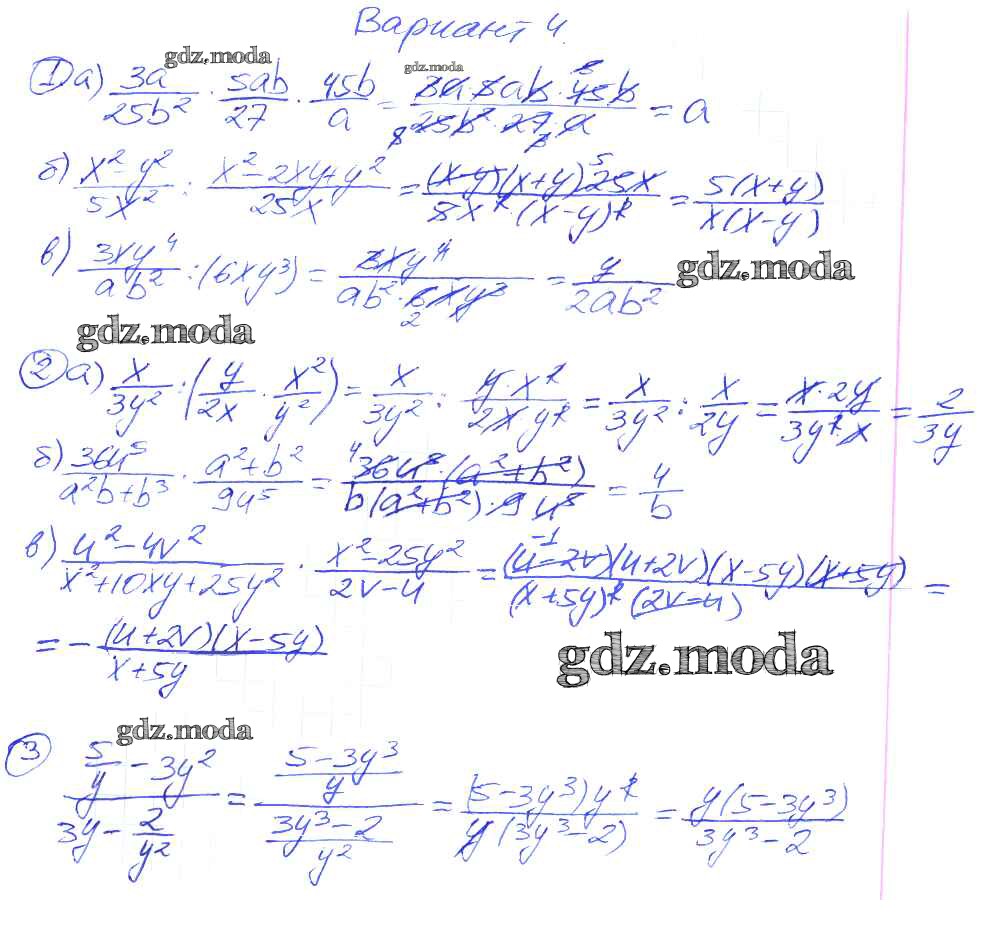 Вариант 4.
gdz.moda
gdz.moda
1 а) 3a/25b² · 5ab/27 · 45b/a = 3a·5ab·45b/25b²·27·a = a
б) x²-y²/5x² : x²-2xy+y²/25x = (x-y)(x+y)25x/5x²·(x-y)² = 5(x+y)/x(x-y)
в) 3xy⁴/ab² : (6xy³) = 3xy⁴/ab²·6xy³ = y/2ab²
gdz.moda
gdz.moda
2 а) x/3y² : (y/2x · x²/y²) = x/3y² : y·x²/2xy² = x/3y² : x/2y = x·2y/3y²·x = 2/3y
б) 36u⁵/a²b+b³ · a²+b²/9u⁵ = 36u⁵·(a²+b²)/b(a²+b²)·9u⁵ = 4/b
в) u²-4v²/x²+10xy+25y² · x²-25y²/2v-u = (u-2v)(u+2v)(x-5y)(x+5y)/(x+5y)²(2v-u) =
= -(u+2v)(x-5y)/x+5y
gdz.moda
gdz.moda
3 5/y - 3y²/3y - 2/y² = 5-3y³/y/3y³-2/y² = (5-3y³)y²/y(3y³-2) = y(5-3y³)/3y³-2